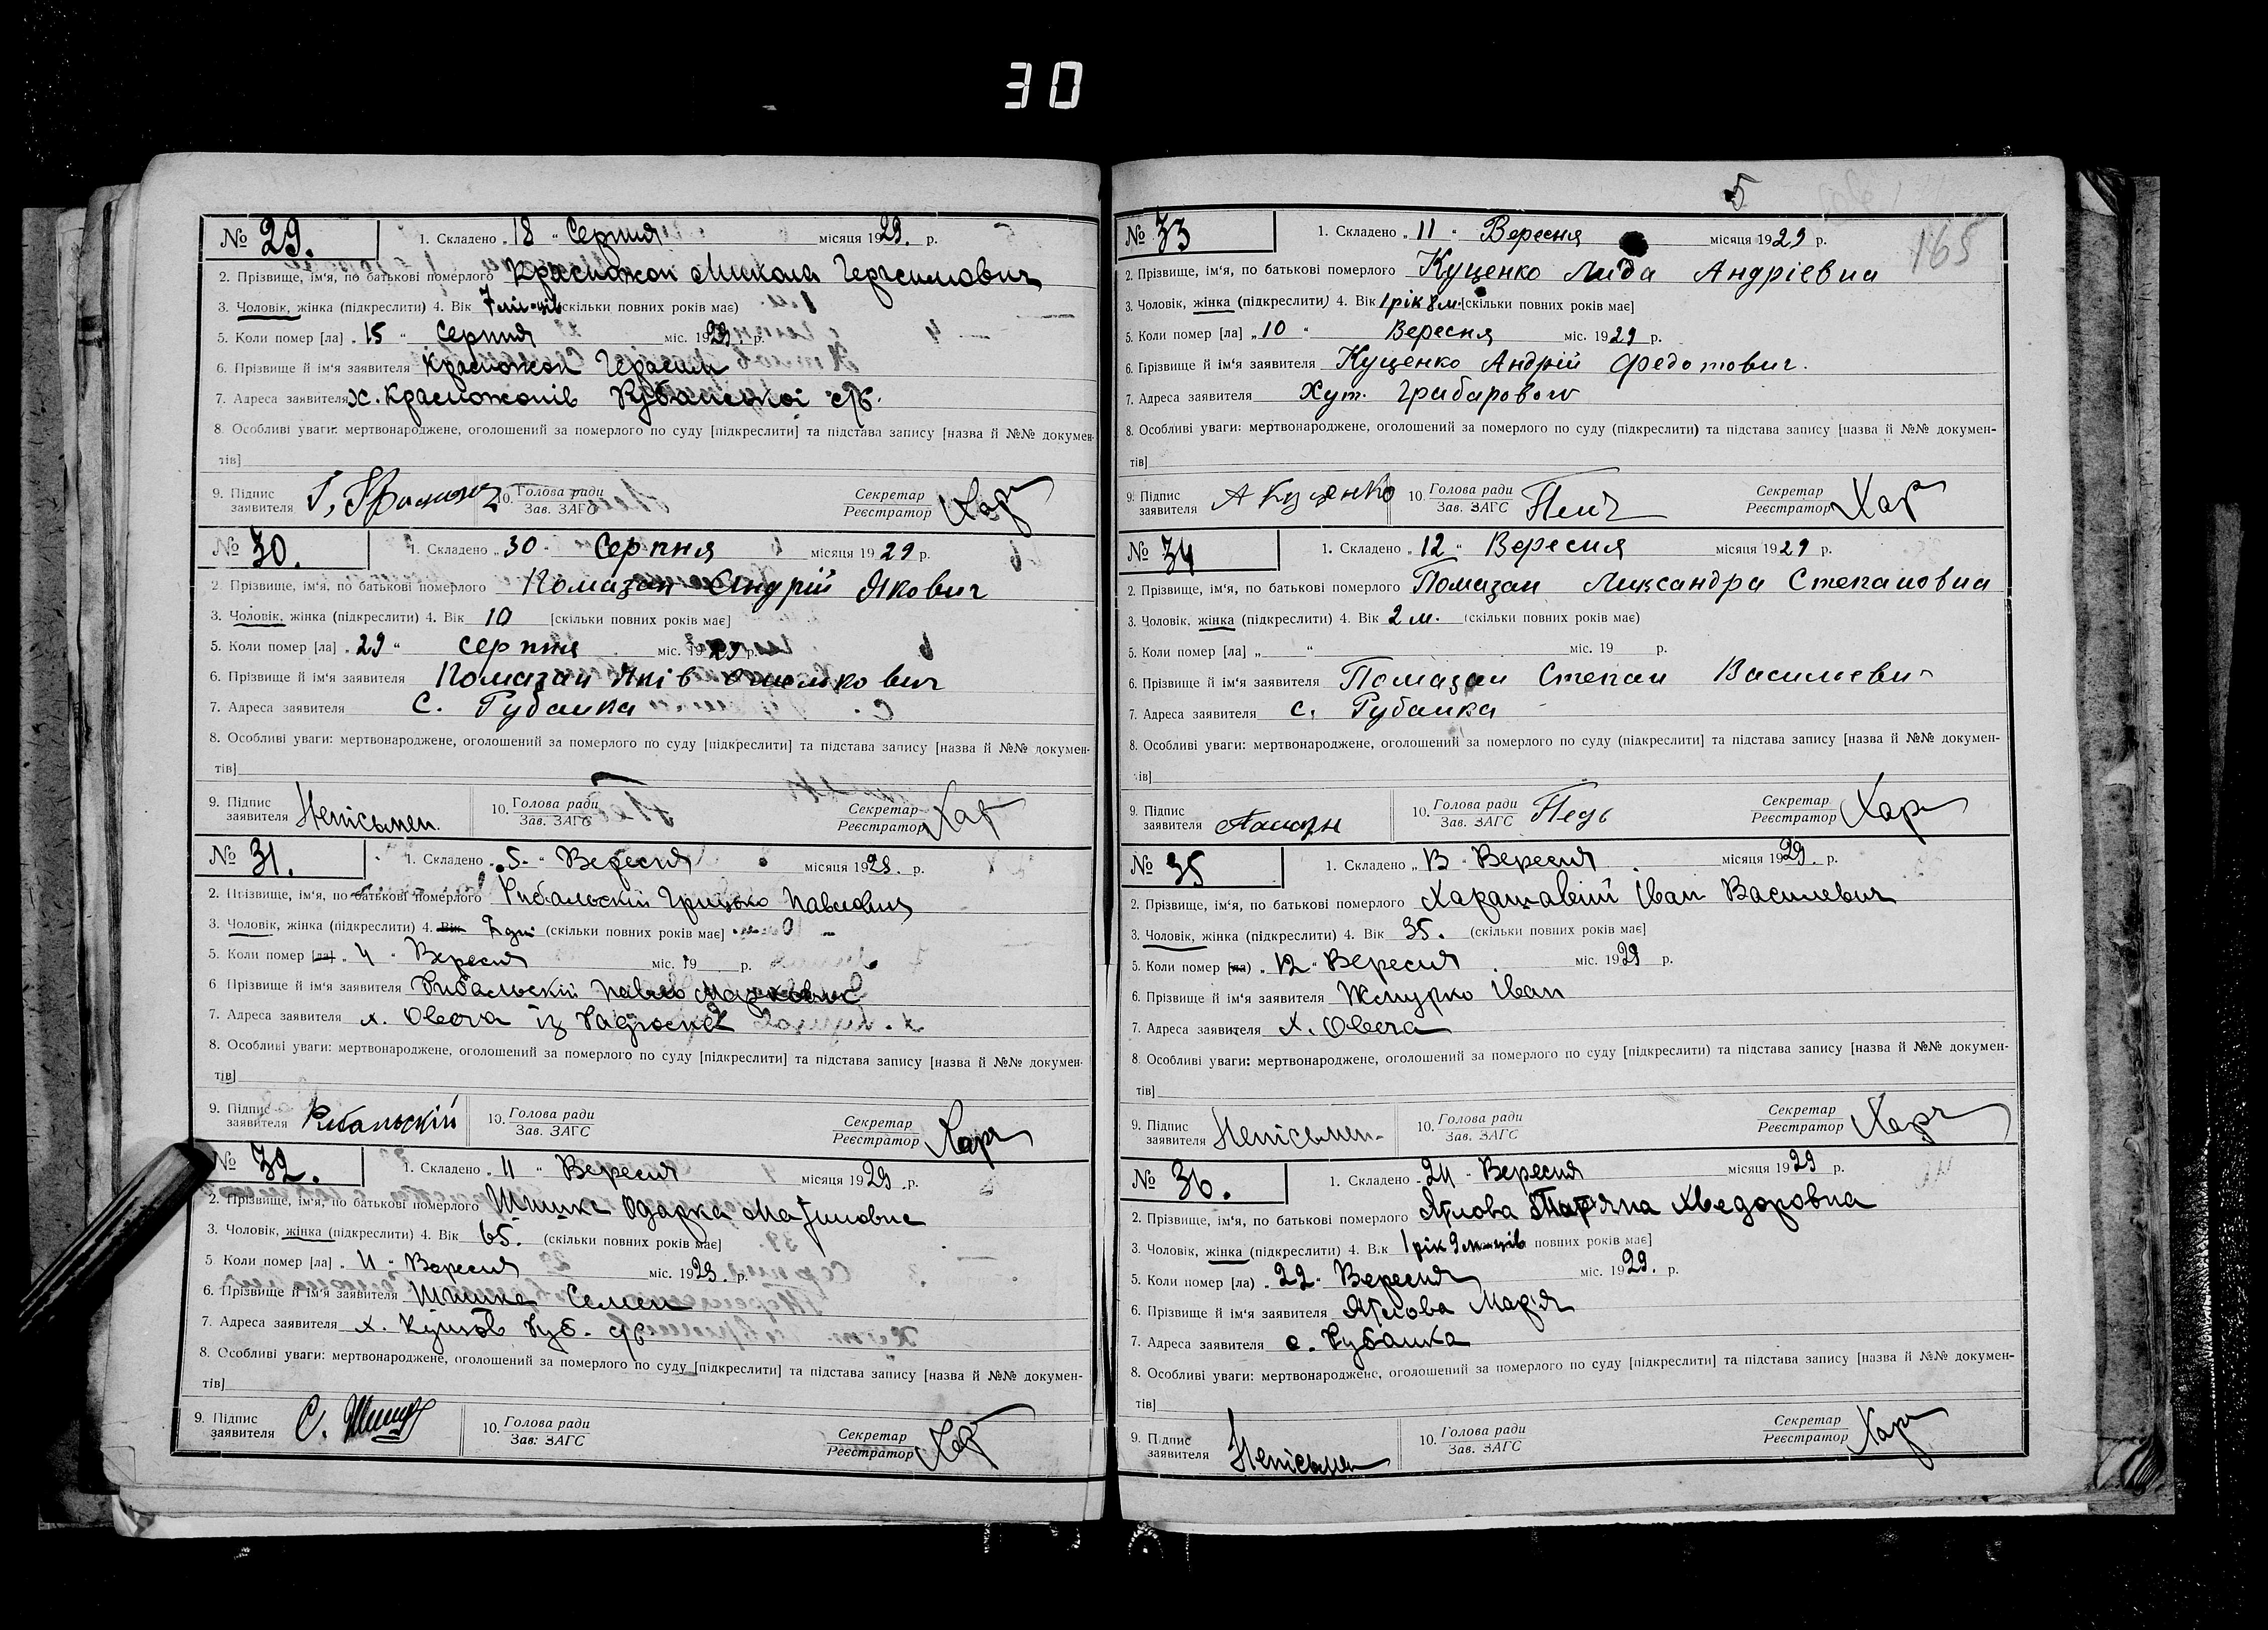 30
№ 29. 1. Складено „ 18 “ Серпня місяця 1929. р.
2. Прізвище, ім'я, по батькові померлого Красножон Микола Герасимович
3. Чоловік, жінка (підкреслити) 4. Вік 7 скільки повних років має)
5. Коли помер [ла] „ 15 “ Серпня міс. 1929 р.
6. Прізвище й ім'я заявителя Красножон Герасим
7. Адреса заявителя х. Красножонів
8. Особливі уваги: мертвонароджене, оголошений за померлого по суду [підкреслити] та підстава запису [назва й №№ докумен-
тів]
9. Підпис заявителя 10. Голова ради Зав. ЗАГС Секретар Реєстратор Хар
№ 30. 1. Складено „ 30 “ Серпня місяця 1929 р.
2. Прізвище, ім'я, по батькові померлого Помазан Андрій Якович
3. Чоловік, жінка (підкреслити) 4. Вік 10 [скільки повних років має]
5. Коли помер [ла] „ 29 “ серпня міс. 1929 р.
6. Прізвище й ім'я заявителя Помазан Яків Омелькович
7. Адреса заявителя с. Рубанка
8. Особливі уваги: мертвонароджене, оголошений за померлого по суду [підкреслити] та підстава запису [назва й №№ докумен-
тів]
9. Підпис заявителя Неписьмен. 10. Голова ради Зав. ЗАГС Секретар Реєстратор Хар
№ 31. 1. Складено „ 5 “ Вересня місяця 1929. р.
2. Прізвище, ім'я, по батькові померлого Рибальский Грицько Павлович
3. Чоловік, жінка (підкреслити) 4. Вік дні (скільки повних років має]
5. Коли помер [ла] „ 4 “ Вересня міс. 19 р.
6 Прізвище й ім'я заявителя Рибальский Павло Маркович
7. Адреса заявителя х. Овеча із
8. Особливі уваги: мертвонароджене, оголошений за померлого по суду [підкреслити] та підстава запису [назва й №№ докумен-
тів]
9. Підпис заявителя Рибальский 10. Голова ради Зав. ЗАГС Секретар Реєстратор Хар
№ 32. 1. Складено „ 11 “ Вересня місяця 1929 р.
2. Прізвище, ім'я, по батькові померлого Одарка
3. Чоловік, жінка (підкреслити) 4. Вік 65. (скільки повних років має]
5 Коли помер [ла] „ 11 “ Вересня міс. 1929. р.
6. Прізвище й ім'я заявителя Семен
7. Адреса заявителя х.
8. Особливі уваги: мертвонароджене, оголошений за померлого по суду [підкреслити] та підстава запису [назва й №№ докумен-
тів]
9. Підпис заявителя С. 10. Голова ради Зав: ЗАГС Секретар Реєстратор Хар
5
165
№ 33 1. Складено „ 11 “ Вересня місяця 1929 р.
2. Прізвище, ім'я, по батькові померлого Куценко Лида Андріевна
3. Чоловік, жінка (підкреслити) 4. Вік 1 рік 8 м. [скільки повних років має]
5. Коли помер [ла] „ 10 “ Вересня міс. 1929 р.
6. Прізвище й ім'я заявителя Куценко Андрій Федотович.
7. Адреса заявителя Хут. Грибарового
8. Особливі уваги: мертвонароджене, оголошений за померлого по суду (підкреслити) та підстава запису [назва й №№ докумен-
тів]
9. Підпис заявителя А Куценко 10. Голова ради Зав. ЗАГС Секретар Реєстратор Хар
№ 34 1. Складено „ 12 “ Вересня місяця 1929 р.
2. Прізвище, ім'я, по батькові померлого Помазан Ликсандра Степановна
3. Чоловік, жінка (підкреслити) 4. Вік 2 м. (скільки повних років має)
5. Коли помер [ла] „ “ міс. 19 р.
6. Прізвище й ім'я заявителя Помазан Степан Васильевич
7. Адреса заявителя с. Рубанка
8. Особливі уваги: мертвонароджене, оголошений за померлого по суду (підкреслити] та підстава запису [назва й №№ докумен-
ів]
9. Підпис заявителя 10. Голова ради Зав. ЗАГС Секретар Реєстратор Хар
№ 35 1. Складено „ 13 “ Вересня місяця 1929. р.
2. Прізвище, ім'я, по батькові померлого Іван Василевич
3. Чоловік, жінка (підкреслити) 4. Вік 35. (скільки повних років має]
5. Коли помер [ла) „ 12 “ Вересня міс. 1929 р.
6. Прізвище й ім'я заявителя Жмурко Іван
7. Адреса заявителя х. Овеча
8 Особливі уваги: мертвонароджене, оголошений за померлого по суду [підкреслити) та підстава запису [назва й №№ докумен-
тів]
9. Підпис заявителя Неписьмен- 10. Голова ради Зав. ЗАГС Секретар Реєстратор Хар
№ 36. 1. Складено „ 24 “ Вересня місяця 1929 р.
2. Прізвище, ім'я, по батькові померлого Хведоровна
3. Чоловік, жінка (підкреслити) 4. Вік 1 рік 9 повних років має]
5. Коли помер [ла) „ 22 “ Вересня міс. 1929. р.
6. Прізвище й ім'я заявителя Марія
7. Адреса заявителя с. Рубанка
8. Особливі уваги: мертвонароджене, оголошений за померлого по суду [підкреслити] та підстава запису [назва й №№ докумен-
тів]
9. Підпис заявителя Неписьмен 10. Голова ради Зав. ЗАГС Секретар Реєстратор Хар